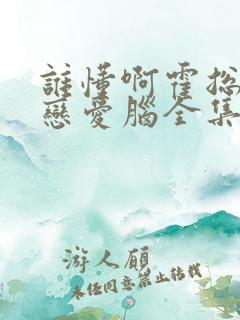 誰懂啊霍总
戀愛腦全集
游人顧
未任同意禁止转载